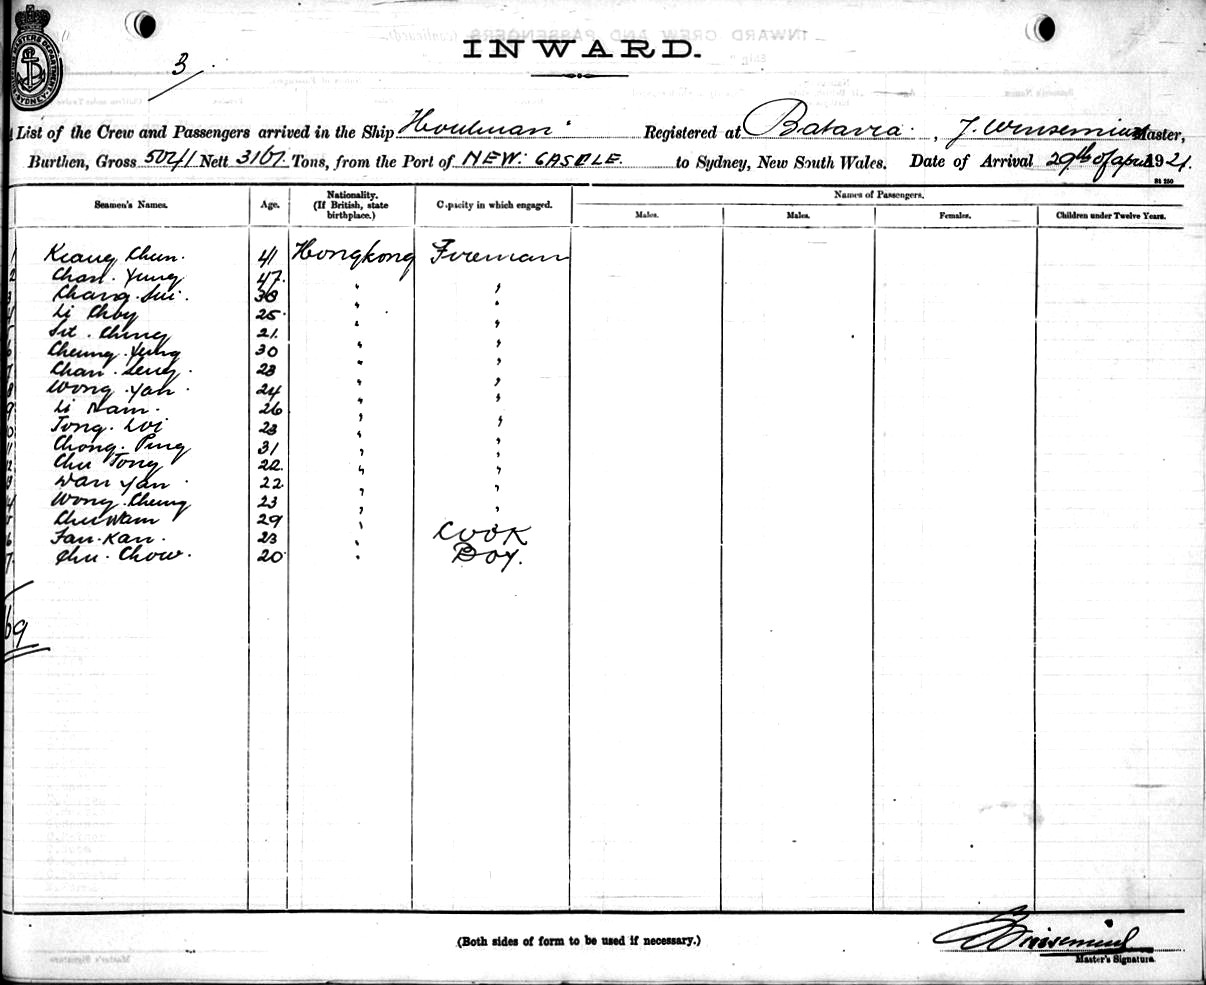 INWARD.
3
List of the Crew and Passengers arrived in the Ship Houtman Registered at Batavia. , J. Winsemius Master,
Burthen, Gross 5041 Nett 3161 Tons, from the Port of NEW. CASDLE. to Sydney, New South Wales. Date of Arrival 29th of april 1921.
Seamen's Names. Age. Nationality. (If British, state birthplace.) Capacity in which engaged. Names of Passengers.
Males. Males. Females. Children under Twelve Years.
1 Kiang Chun. 41 Hongkong Fireman
2 Chan. Yung 47. " "
3 Chang. Sui. 38 " "
4 Li Choy 25. " "
5 Sit. Ching 21. " "
6 Cheung. Yung 30 " "
7 Chan. Seng. 23 " "
8 Wong. Yan. 24 " "
9 Li Nam. 26 " "
0 Tong. Loi 23 " "
1 Chong. Ping 31 " "
2 Chu Tong 22. " "
3 Wan Yan. 22 " "
4 Wong. Cheung 23 " "
5 Chu Wam 29 " "
6 Fan. Kan. 23 " Cook
7 Chu. Chow. 20 " Boy.
69
(Both sides of form to be used if necessary.)
Winsemius
Master's Signature.